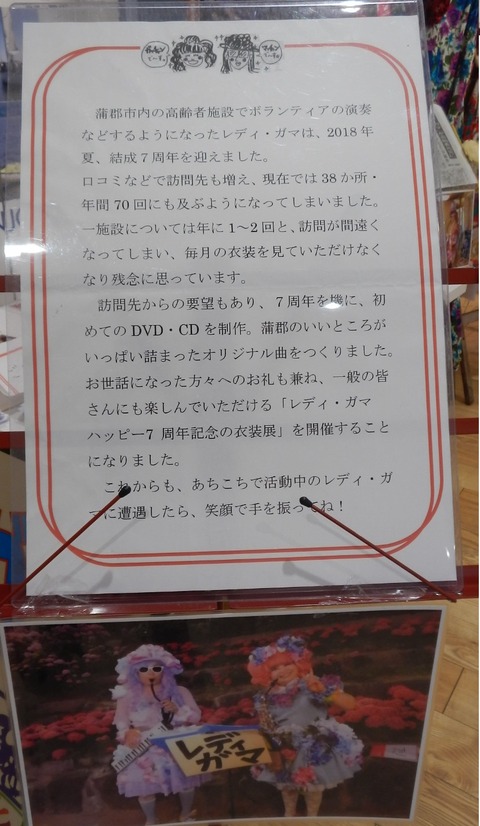 蒲郡市内の高齢者施設でボランティアの演奏
などするようになったレディ・ガマは、2018年
夏、結成7周年を迎えました。
口コミなどで訪問先も増え、現在では38か所・
年間70回にも及ぶようになってしまいました。
一施設については年に1~2回と、訪問が間遠く
なってしまい、毎月の衣装を見ていただけなく
なり残念に思っています。
訪問先からの要望もあり、7周年を機に、初
めてのDVD・CDを制作。蒲郡のいいところが
いっぱい詰まったオリジナル曲をつくりました。
お世話になった方々へのお礼も兼ね、一般の皆
さんにも楽しんでいただける「レディ・ガマ
ハッピー7 周年記念の衣装展」を開催すること
になりました。
これからも、あちこちで活動中のレディ・ガ
マに遭遇したら、笑顔で手を振ってね!
レディ
ガマ